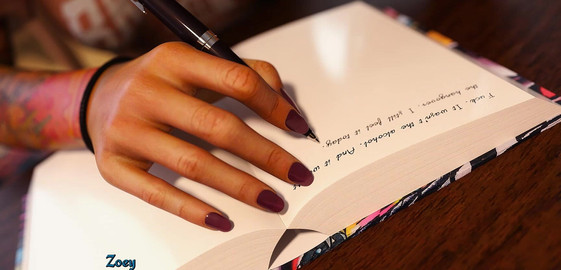 Fuck. It wasn't the alcohol. And it
the hangover. I still feel it today.
Zoey